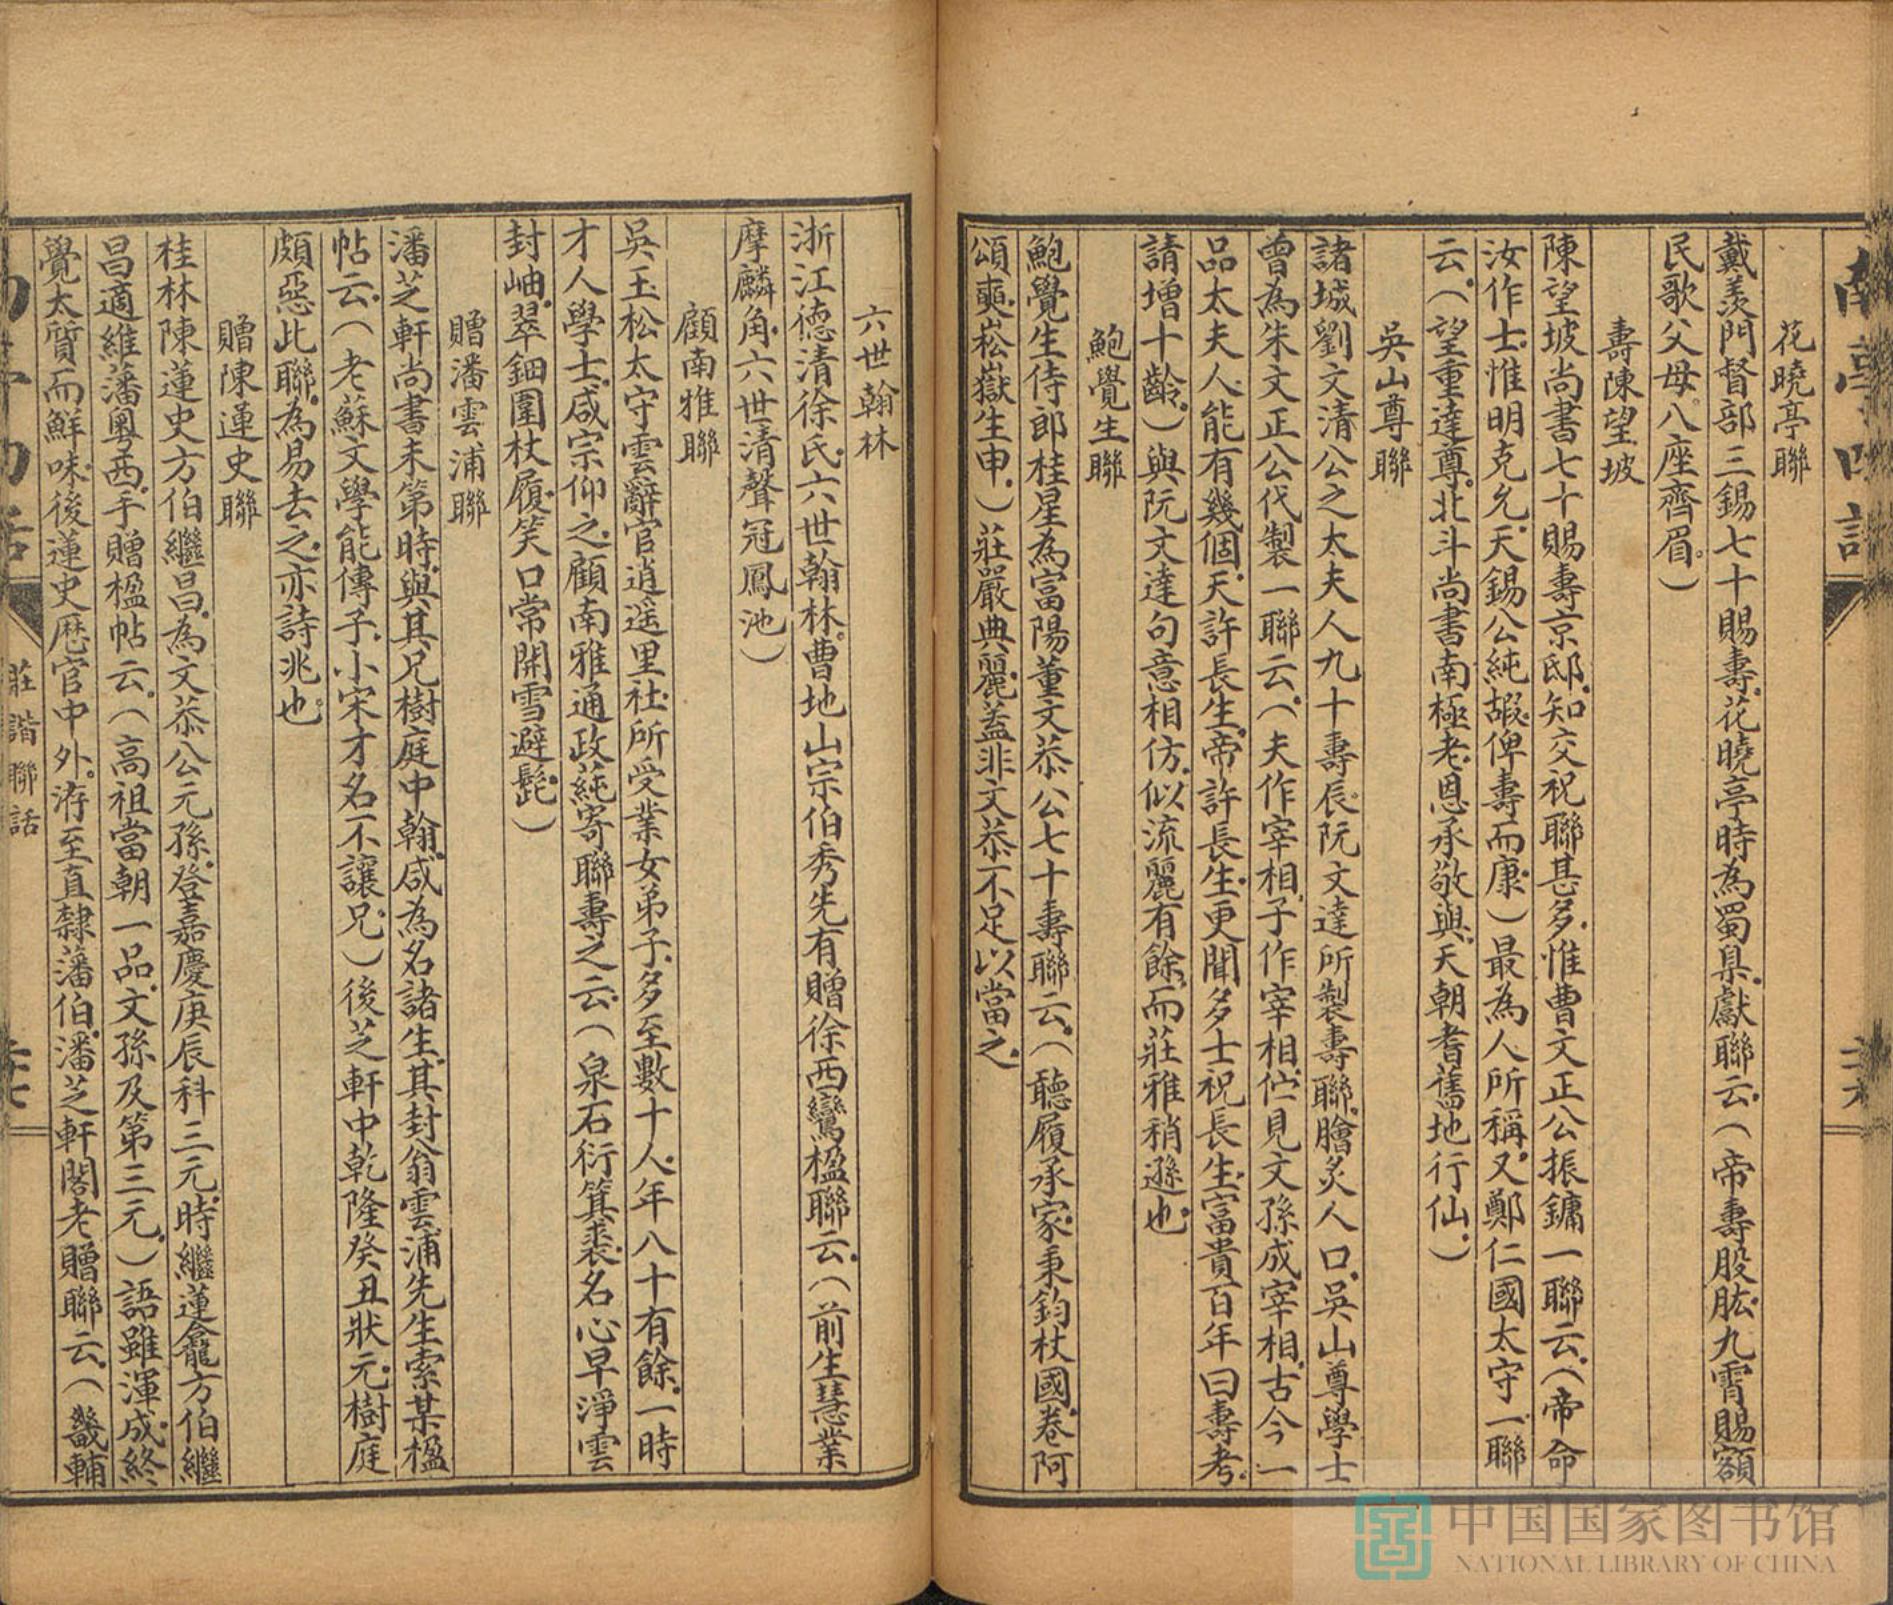 南亭四話
二十六
花曉亭聯
戴羨門督部三錫七十賜壽花曉亭時為蜀臬獻聯云（帝壽股肱九霄賜額
民歌父母八座齊眉）
壽陳望坡
陳望坡尚書七十賜壽京邸知交祝聯甚多惟曹文正公振鏞一聯云（帝命
汝作士惟明克允天錫公純嘏俾壽而康）最為人所稱又鄭仁國太守一聯
云（望重達尊北斗尚書南極老恩承敬與天朝耆舊地行仙）
吳山尊聯
諸城劉文清公之太夫人九十壽辰阮文達所製壽聯膾炙人口吳山尊學士
曾為朱文正公代製一聯云（夫作宰相子作宰相佇見文孫成宰相古今一
品太夫人能有幾個天許長生帝許長生更聞多士祝長生富貴百年曰壽考
請增十齡）與阮文達句意相仿似流麗有餘而莊雅稍遜也
鮑覺生聯
鮑覺生侍郎桂星為富陽董文恭公七十壽聯云（聽履承家秉鈞杖國卷阿
頌奭崧嶽生申）莊嚴典麗蓋非文恭不足以當之
六世翰林
浙江德清徐氏六世翰林曹地山宗伯秀先有贈徐西鸞楹聯云（前生慧業
摩麟角六世清聲冠鳳池）
顧南雅聯
吳玉松太守雲辭官逍遙里社所受業女弟子多至數十人年八十有餘一時
才人學士咸宗仰之顧南雅通政蒓寄聯壽之云（泉石衍箕裘名心早淨雲
封岫翠鈿圍杖履笑口常開雪避髭）
贈潘雲浦聯
潘芝軒尚書未第時與其兄樹庭中翰咸為名諸生其封翁雲浦先生索某楹
帖云（老蘇文學能傳子小宋才名不讓兄）後芝軒中乾隆癸丑狀元樹庭
頗惡此聯為易去之亦詩兆也
贈陳蓮史聯
桂林陳蓮史方伯繼昌為文恭公元孫登嘉慶庚辰科三元時繼蓮龕方伯繼
昌適維藩粵西手贈楹帖云（高祖當朝一品文孫及第三元）語雖渾成終
覺太質而鮮味後蓮史歷官中外洊至直隸藩伯潘芝軒閣老贈聯云（畿輔
莊諧聯話